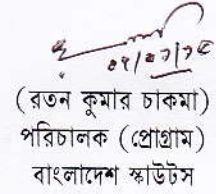 (রতন কুমার চাকমা)
পরিচালক (প্রোগ্রাম)
বাংলাদেশ স্কাউটস